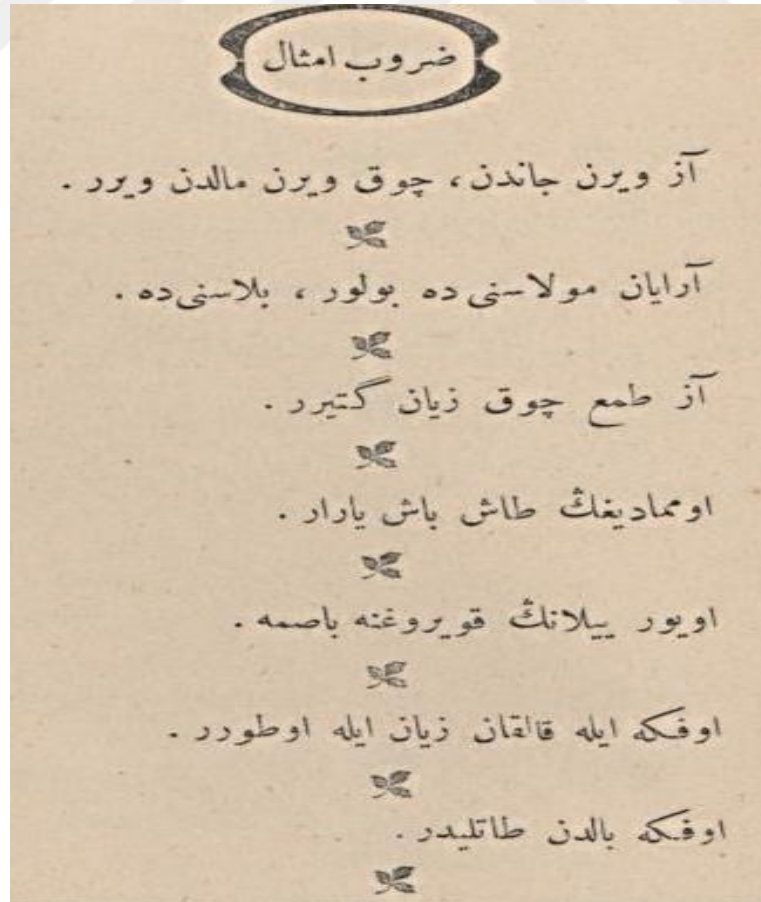 ضروب امثال
آز ويرن جاندن، چوق ويرن مالدن ويرر .
آرايان مولاسنى ده بولور ، بلاسنى ده .
آز طمع چوق زيان گتيرر .
اومماديغڭ طاش باش يارار .
اويور ييلانڭ قويروغنه باصمه .
اوفكه ايله قالقان زيان ايله اوطورر .
اوفكه بالدن طاتليدر .